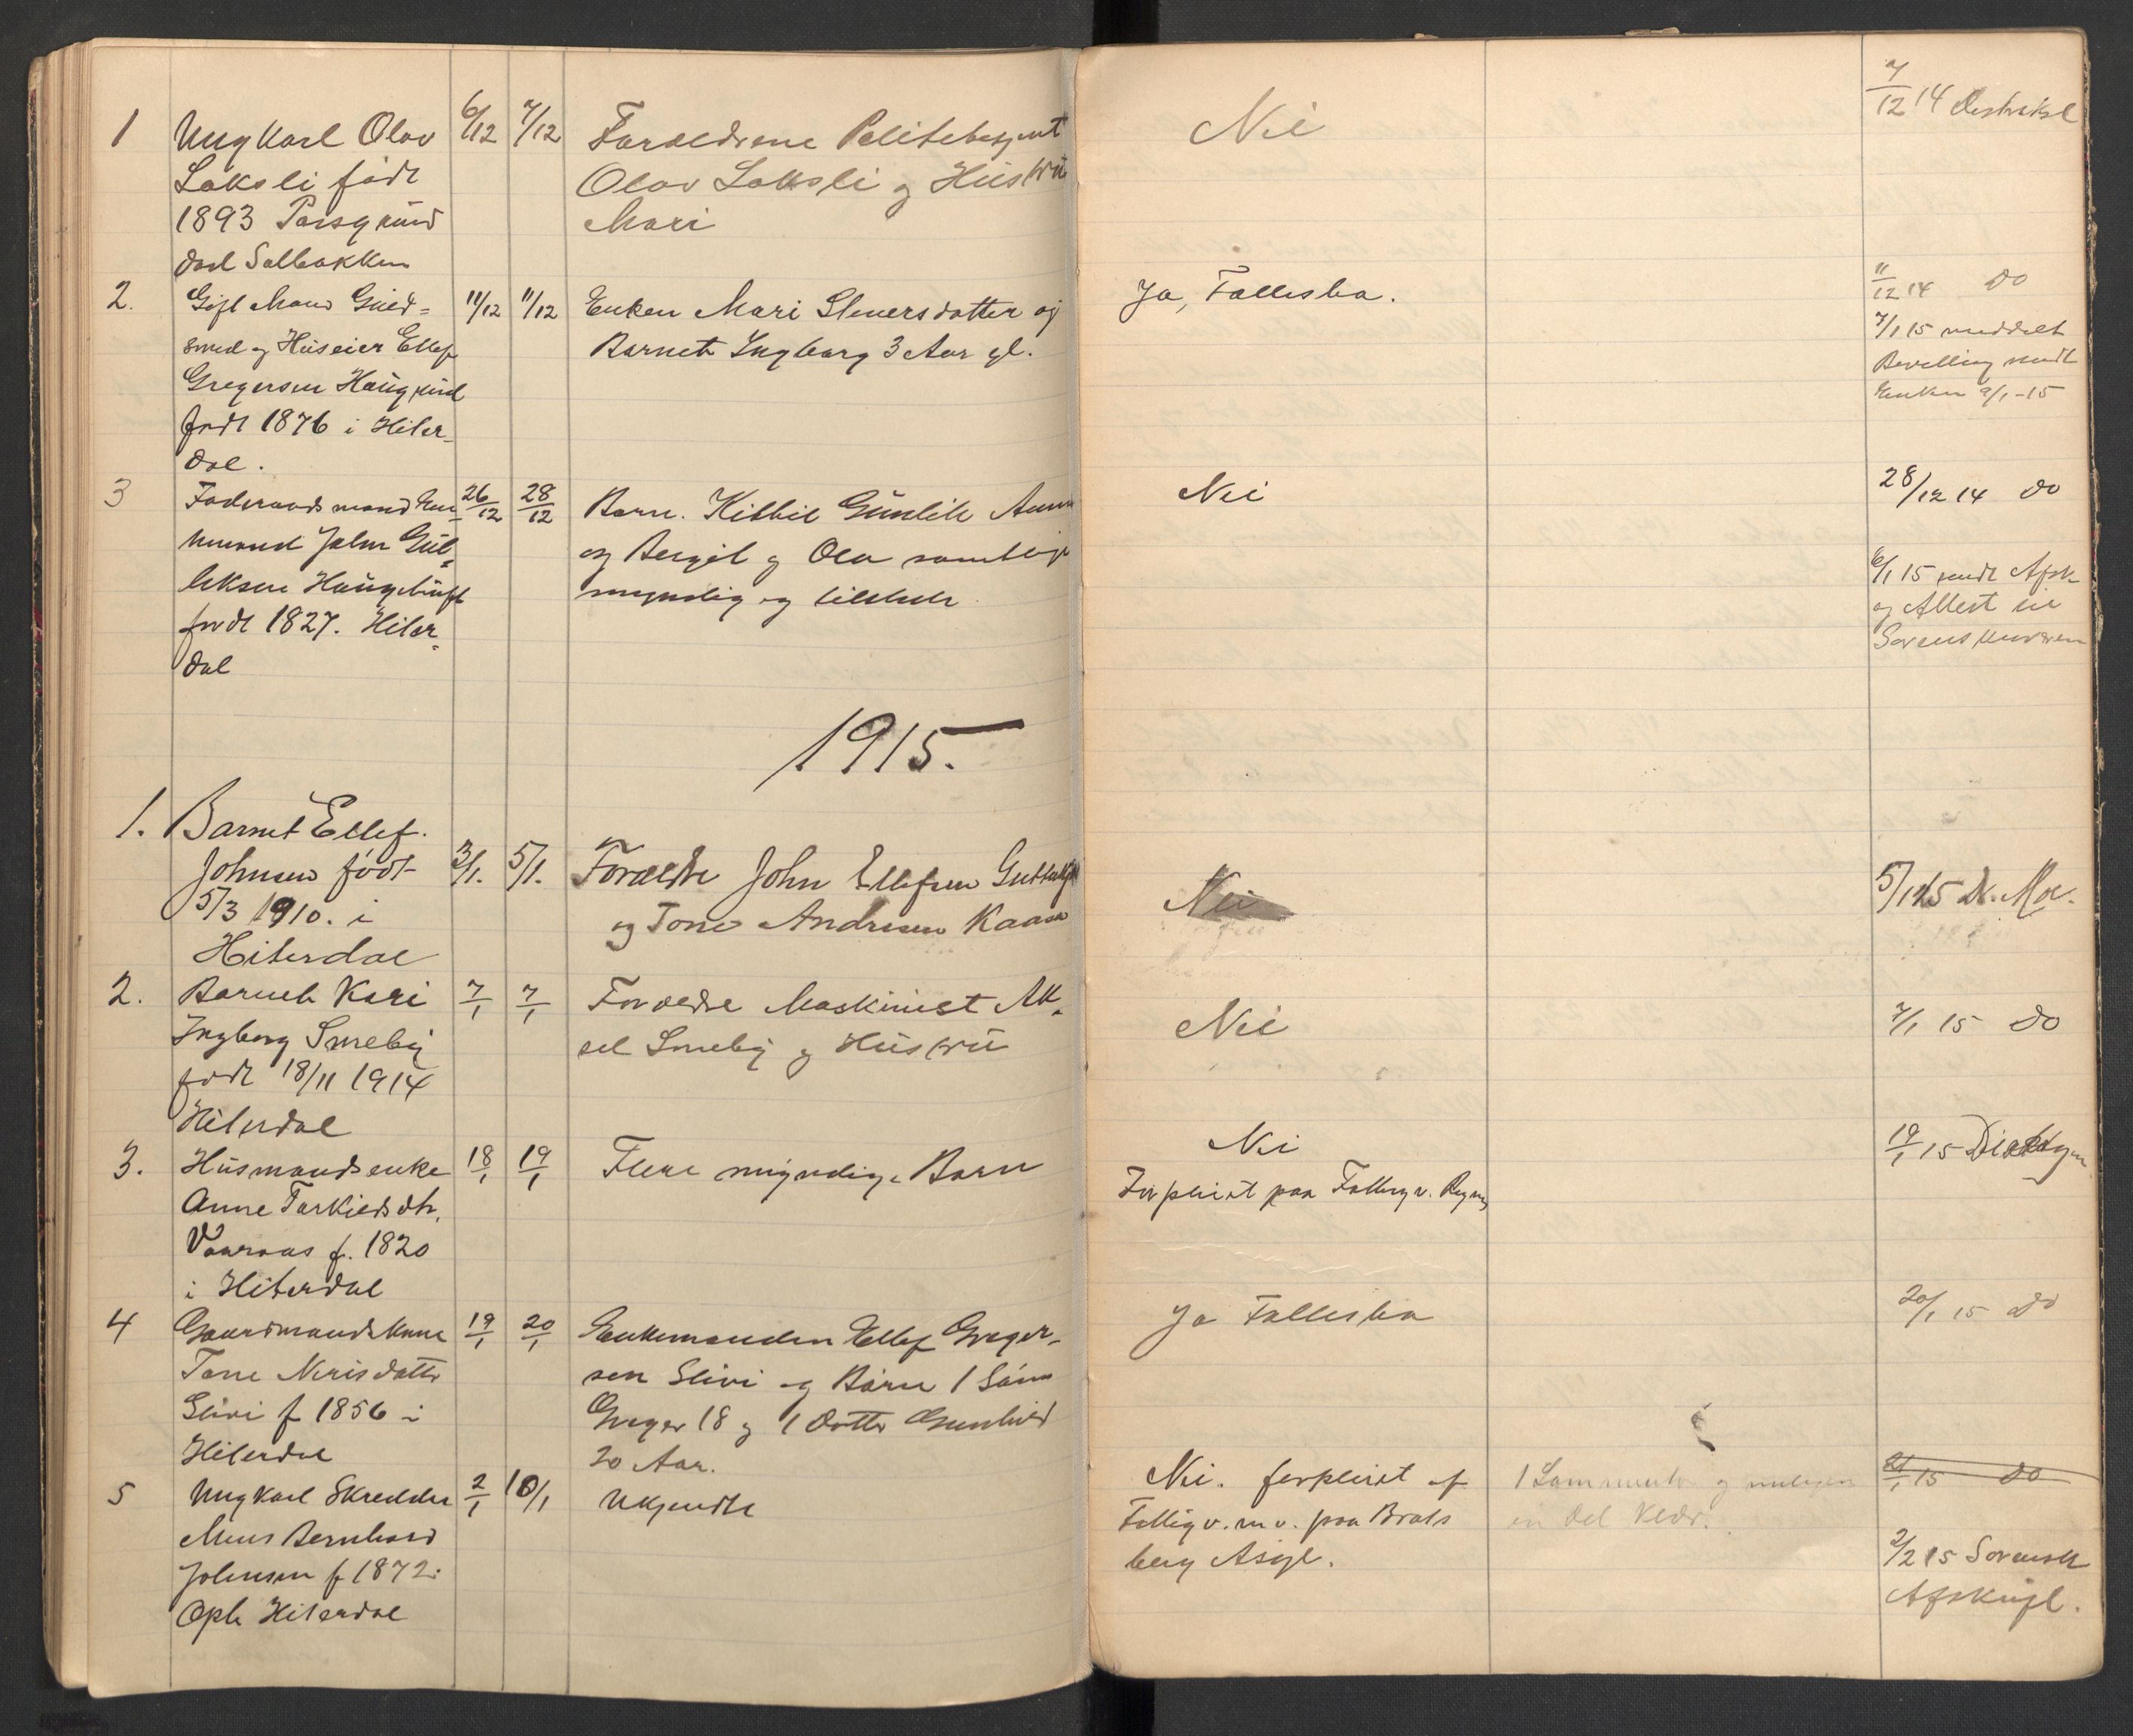 1 Ungkarl Olov 6/12 7/12 Foraldrene Politebetjent Nei 7/12 14
Laksli født Olav Laksli og Hustru
1893 Porsgrund Mari
død Solbakken
2. Gift Mand Guld= 11/12 11/12 Enken Mari Steners datter og Ja, Fællesbo. 11/12 14 do
smed og Huseier Ellef Barnet Ingborg 3 Aar gl. 7/1 15 meddelt
Gregersen Haugrud Bevilling sendt
født 1876 i Hiter- Enken 9/1-15
dal.
3 Føderaadsmand 26/12 28/12 Børn. Kittil Gunlik Nei 28/12 14 do
John Gul= og Bergit og Ola samtlige
leksen myndig og tilstede 6/1 15 sendt Afsk
født 1827. Hiter= og Attest til
dal Sorenskriveren
1915.
1. Barnet Ellef.
Johnsen født 3/1. 5/1. Forældre John Ellefsen Nei 5/1 15
5/3 1910. i og Tone Andresen Kaasa
Hiterdal
2. Barnet Kari 7/1 7/1 Forældre Maskinist Ak- Nei 7/1 15 do
Ingborg Smeby sel Smeby og Hustru
født 18/11 1914
Hiterdal
3. Husmandsenke 18/1 19/1 Flere myndige Børn Nei 19/1 15
Anne Torkildsdtr. Forpleiet paa Fattigv. Regning
Vaaraas f. 1820
i Hiterdal
4 Gaardmandskone 19/1 20/1 Enkemanden Ellef Greger- Ja Fællesbo 20/1 15 do
Tone Nerisdatter sen Slivi og Børn 1 Søn
Slivi f 1856 i Greger 18 og 1 Datter Gunhild
Hiterdal 20 Aar.
5 Ungkarl Skredder 2/1 10/1 Ukjendte Nei. forpleiet af 1 og muligens 21/1 15 do
Bernhard Fattigv. m v. paa Brats en del Klær.
Johnsen f 1872. berg Asyl. 2/2 15 Sorensk
Oph Hiterdal